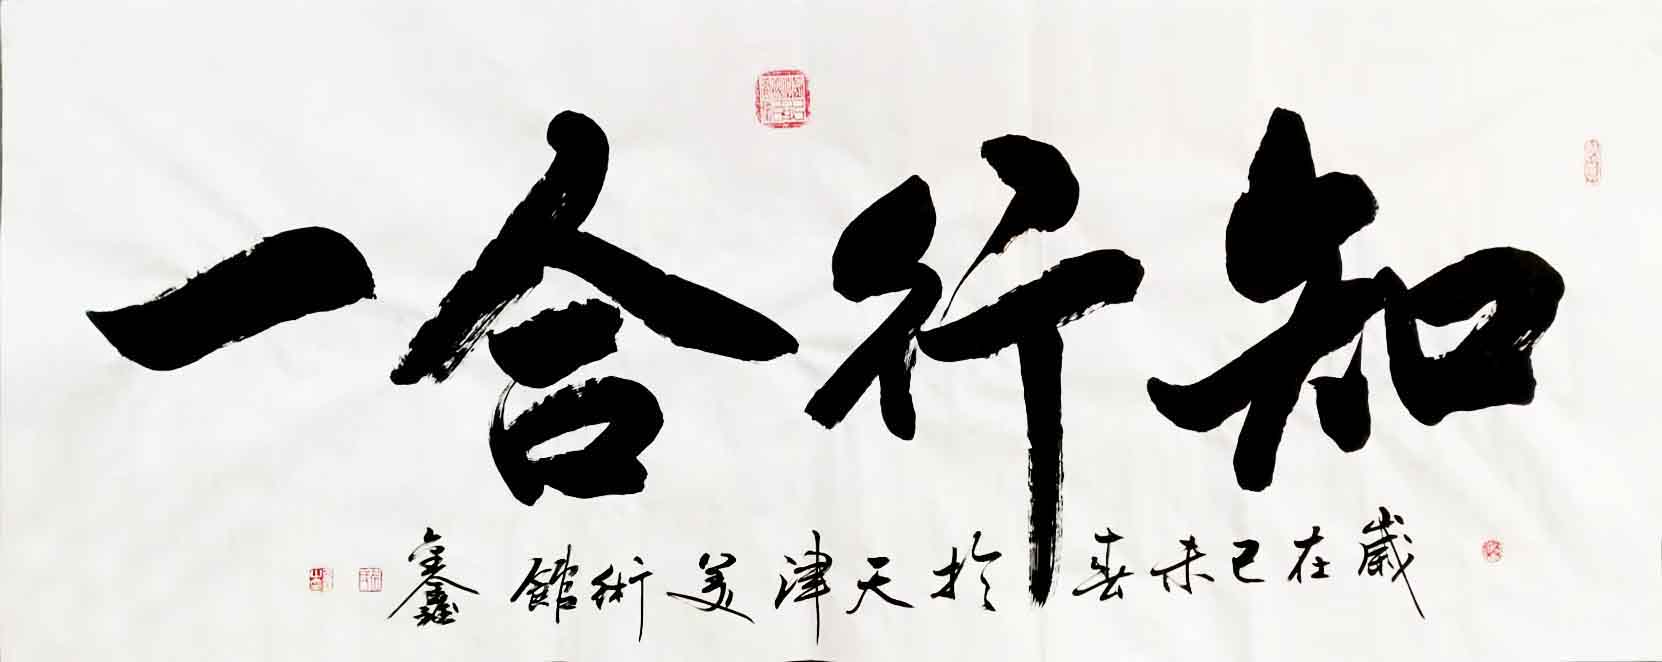 知行合一
歲在己未春於天津美術館鑫